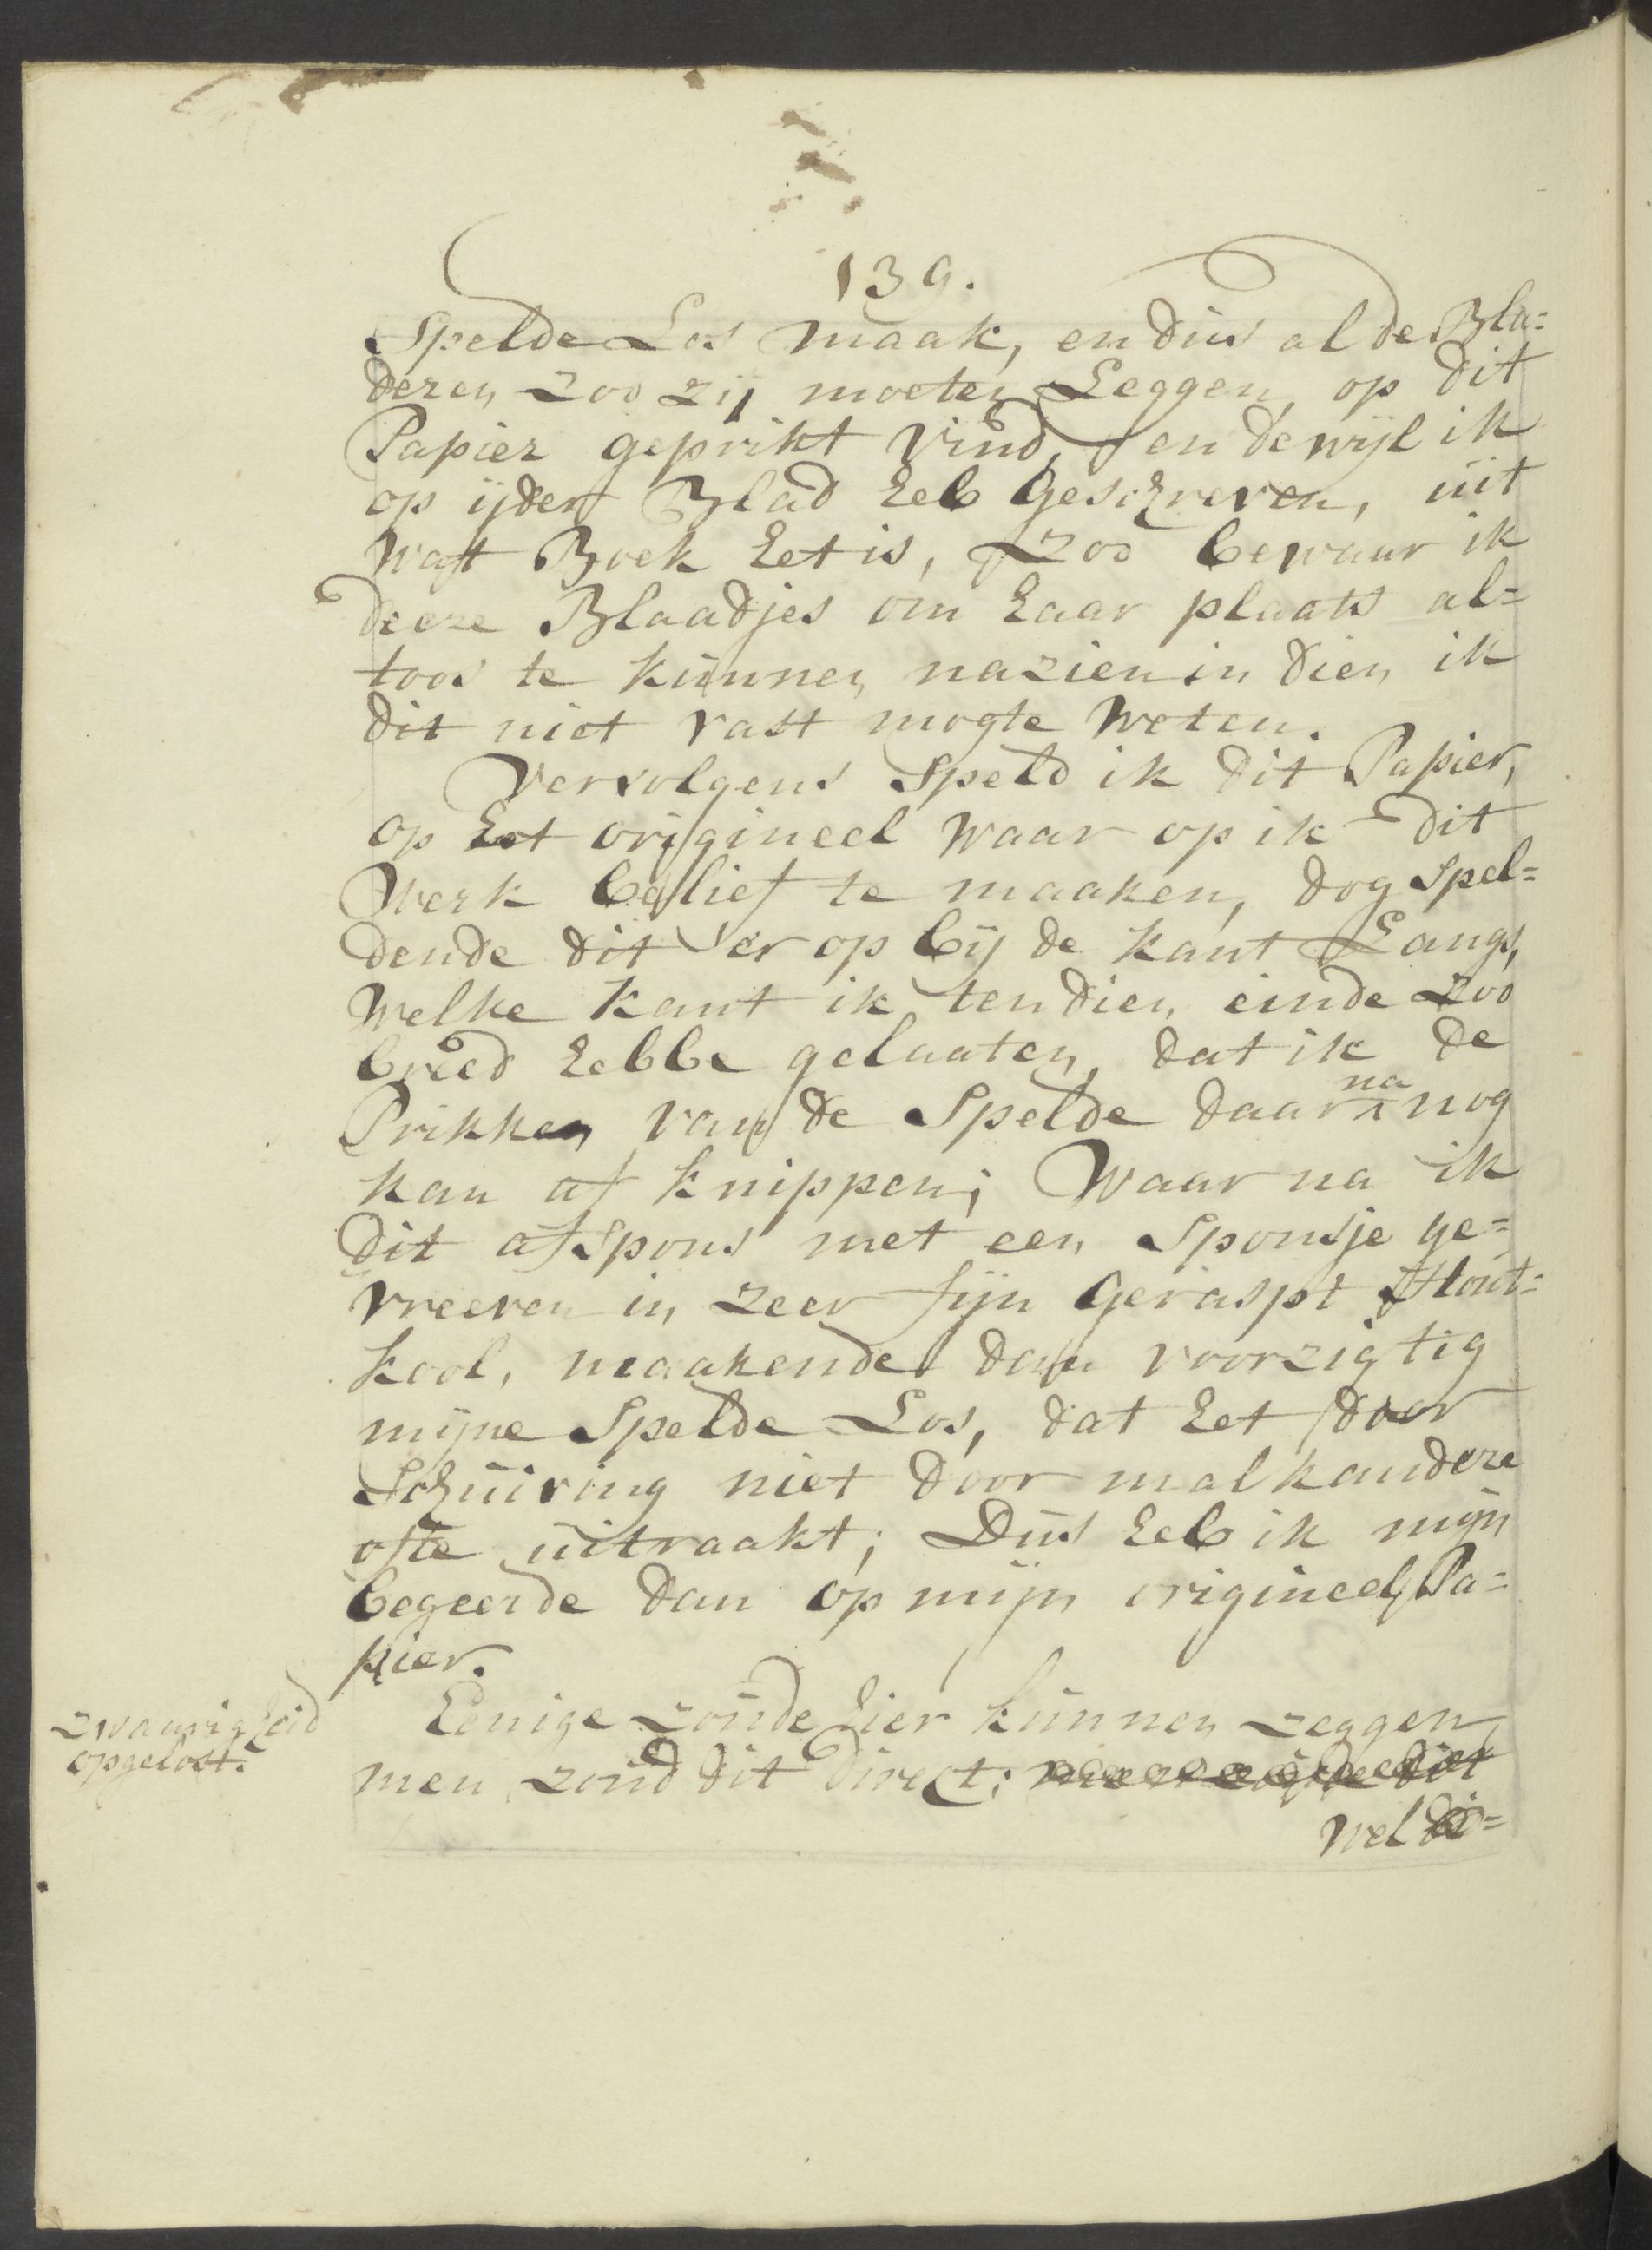 139.
Spelde Los maak, en dus al de Bla=
deren zoo zij moeten Leggen, op dit
Papier geprikt vind, en dewijl ik
op ijder Blad heb Geschreven, uit
wat Boek het is, zoo bewaar ik
deeze Blaadjes om haar plaats al=
toos te kunnen nazien in dien ik
dit niet vast mogte weten.
Vervolgens speld ik dit Papier,
op het origineel waar op ik dit
Werk belief te maaken, dog spel=
dende dit er op bij de kant Langs,
welke kant ik ten dien einde zoo
breed hebbe gelaaten, dat ik de
Prikken van de Spelde daar na nog
kan af knippen; Waar na ik
dit af spons met een Sponsje ge=
vreeven in zeer fijn Geraspt Hout=
kool, maakende dan voorzigtig
mijne Spelde Los, dat het door
Schuiring niet door malkandere
ofte uitraakt; Dus heb ik mijn
begeerde dan op mijn origineel Pa=
pier.
zwaarigheid
opgelost.
Eenige zoude hier kunnen zeggen,
men zoud dit direct:
wel